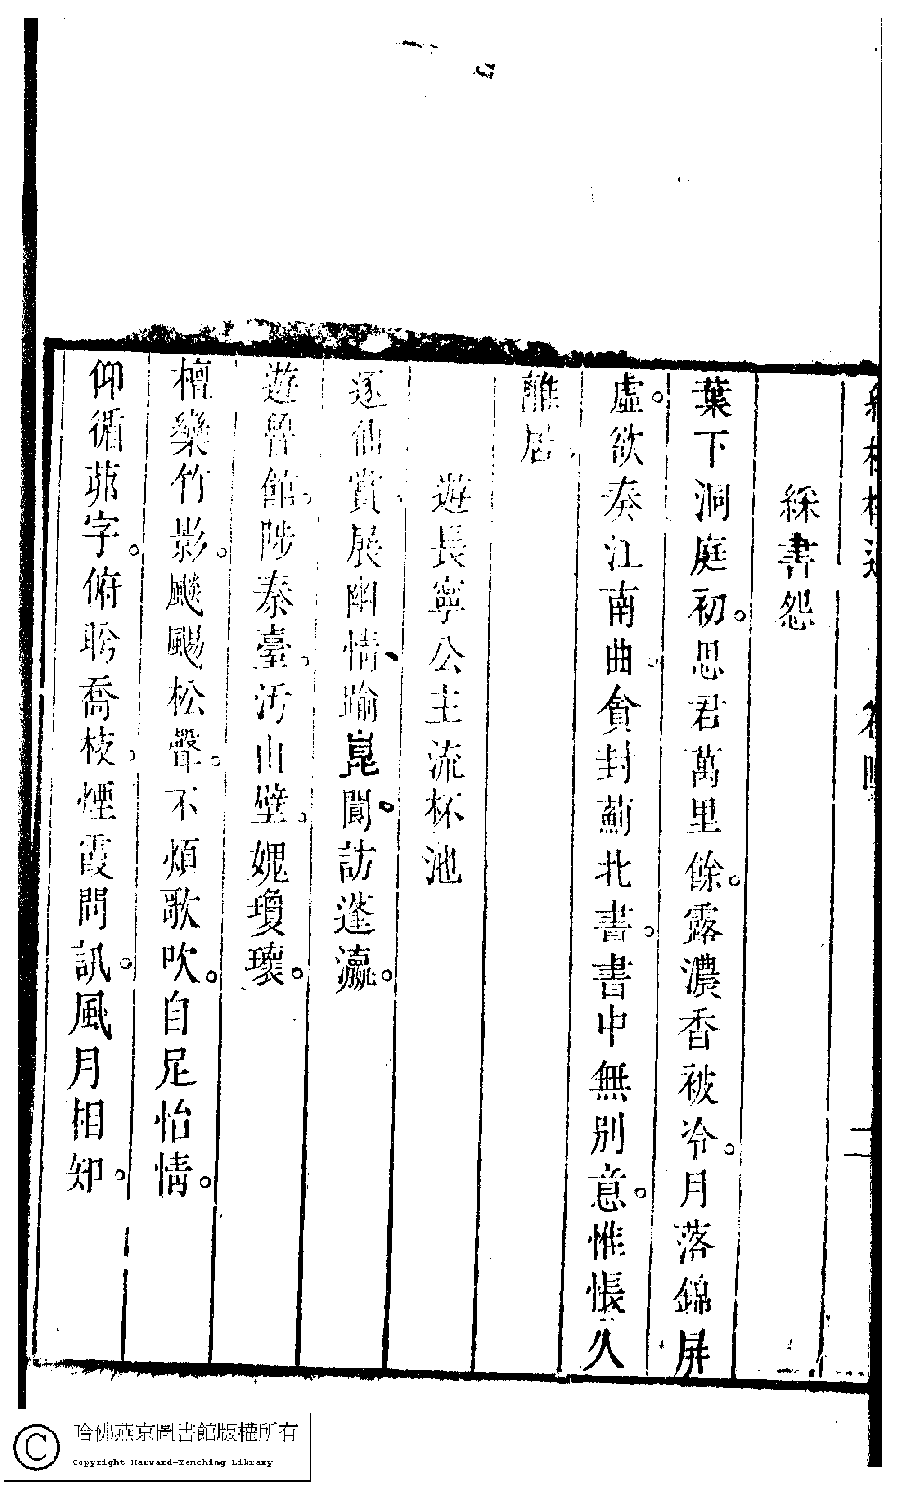 綵書怨
葉下洞庭初思君萬里餘露濃香被冷月落錦屏
虛欲奏江南曲貪封薊北書書中無別意惟悵久
離居
遊長寧公主流杯池
逐仙賞展幽情踰崑閬訪蓬瀛
遊魯館陟秦臺汚山壁媿瓊瓌
檀欒竹影飈䬙松聲不煩歌吹自足怡情
仰循茆宇俯眄喬枝煙霞問訊風月相知
哈佛燕京圖書館版權所有
Copyright Harvard-Yenching Library